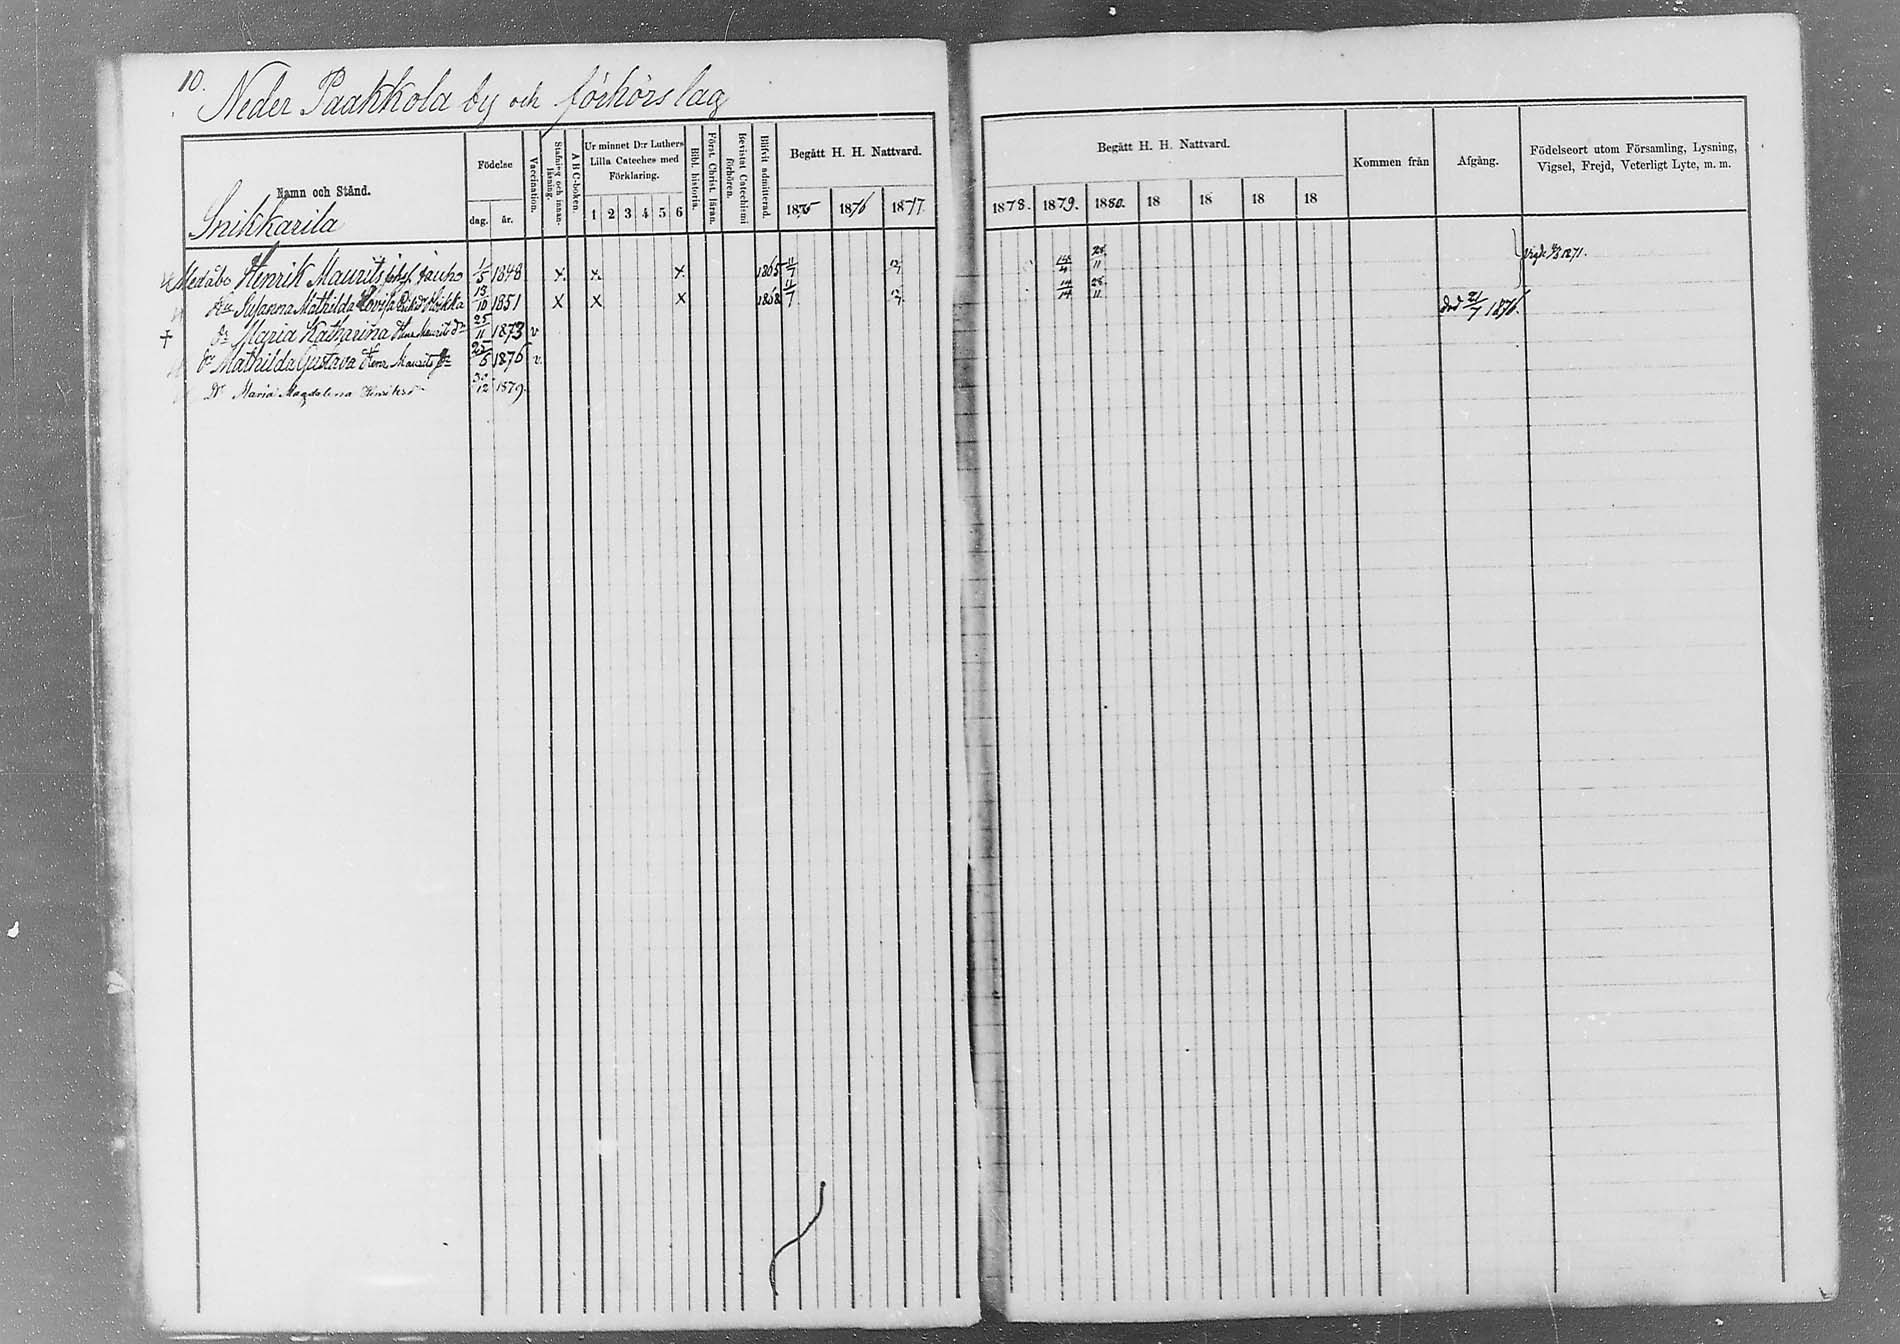 10.
Neder Paakkola by och förhörslag
Namn och Stånd.
Snikkarila
Födelse
dag. år.
Vaccination.
Stafning och innanläsning.
A B C-boken.
Ur minnet D:r Luthers Lilla Cateches med Förklaring.
1 2 3 4 5 6
Bibl. historia.
Först. Christ. läran.
Bevistat Catechismi förhören.
Blifvit admitterad.
Begått H. H. Nattvard.
1875 1876 1877
Begått H. H. Nattvard.
1878. 1879. 1880. 18 18 18 18
Kommen från
Afgång.
Födelseort utom Församling, Lysning, Vigsel, Frejd, Veterligt Lyte, m. m.
Medåbo Henrik Maurits Jauho 1/5 1848 x x x 1865 11/7 11 Vigde 1871.
Hu Susanna Mathilda Lovisa 13/10 1851 x x x 1868 11/7 11
† Dr Maria Katharina Henr. Maurits dr 25/11 1873 v död 21/7 1876.
Dr Mathilda Gustava Henr. Maurits dr 25/5 1876 v.
Dr Maria Magdalena Henriksd 30/12 1879.